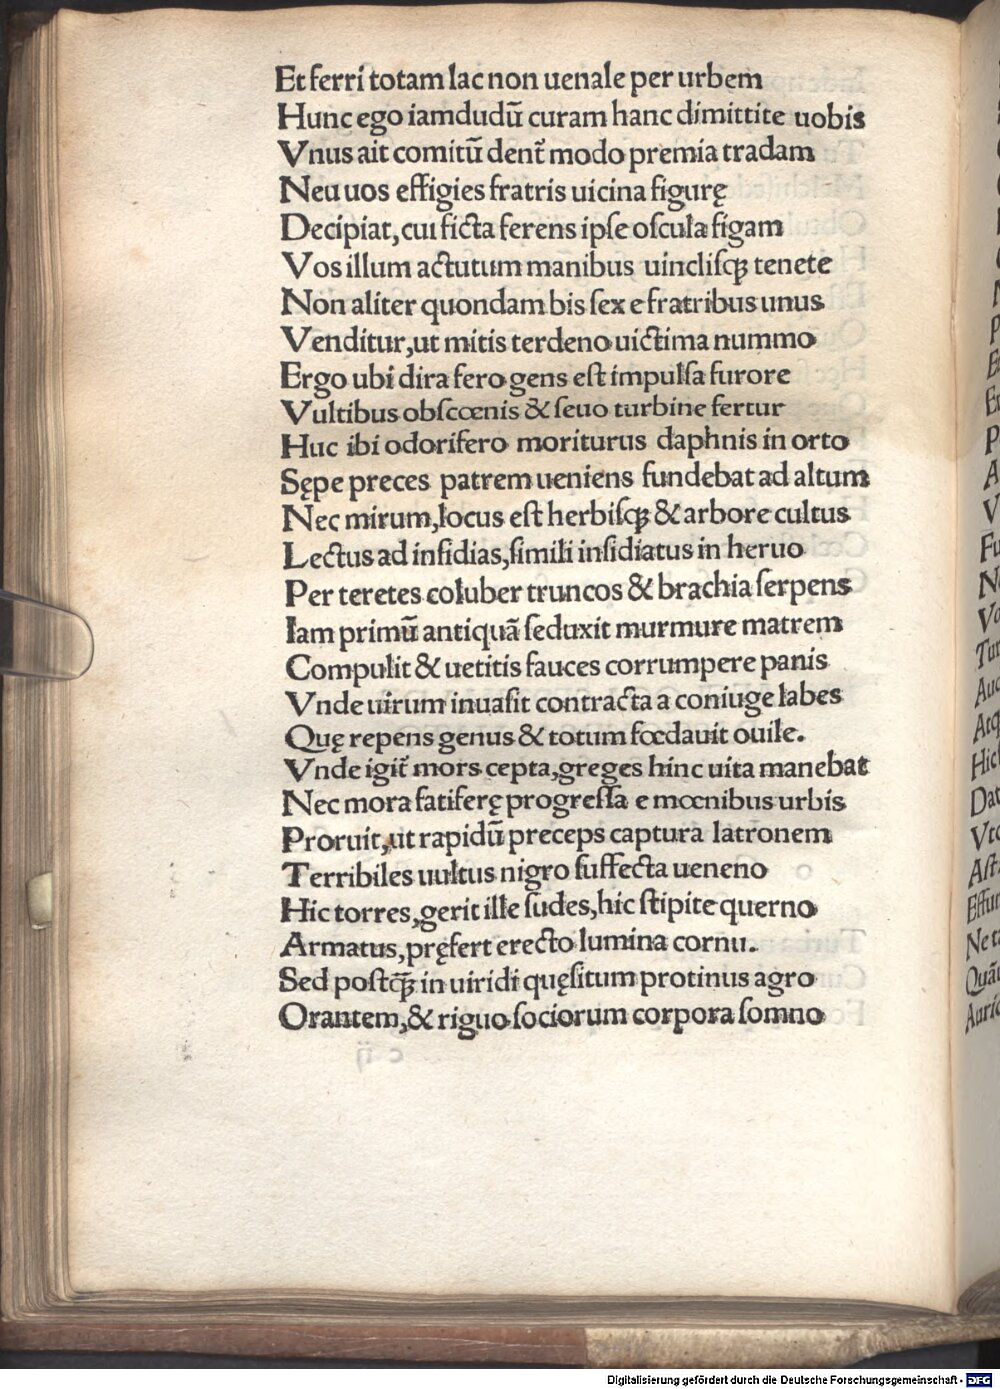 Et ferri totam lac non uenale per urbem
Hunc ego iamdudū curam hanc dimittite uobis
Vnus ait comitū dent᷑ modo premia tradam
Neu uos effigies fratris uicina figurę
Decipiat, cui ficta ferens ipſe oſcula figam
Vos illum actutum manibus uincliſqꝫ tenete
Non aliter quondam bis ſex e fratribus unus
Venditur, ut mitis terdeno uictima nummo
Ergo ubi dira fero gens eſt impulſa furore
Vultibus obſcœnis & ſeuo turbine fertur
Huc ibi odorifero moriturus daphnis in orto
Sępe preces patrem ueniens fundebat ad altum
Nec mirum, locus eſt herbiſqꝫ & arbore cultus
Lectus ad inſidias, ſimili inſidiatus in heruo
Per teretes coluber truncos & brachia ſerpens
Iam primū antiquā ſeduxit murmure matrem
Compulit & uetitis fauces corrumpere panis
Vnde uirum inuaſit contracta a coniuge labes
Quę repens genus & totum fœdauit ouile.
Vnde igit᷑ mors cepta, greges hinc uita manebat
Nec mora fatiferę progreſſa e mœnibus urbis
Proruit, ut rapidū preceps captura latronem
Terribiles uultus nigro ſuffecta ueneno
Hic torres, gerit ille ſudes, hic ſtipite querno
Armatus, pręfert erecto lumina cornu.
Sed poſtꝙ̄ in uiridi quęſitum protinus agro
Orantem, & riguo ſociorum corpora ſomno
Digitalisierung gefördert durch die Deutsche Forschungsgemeinschaft - DFG